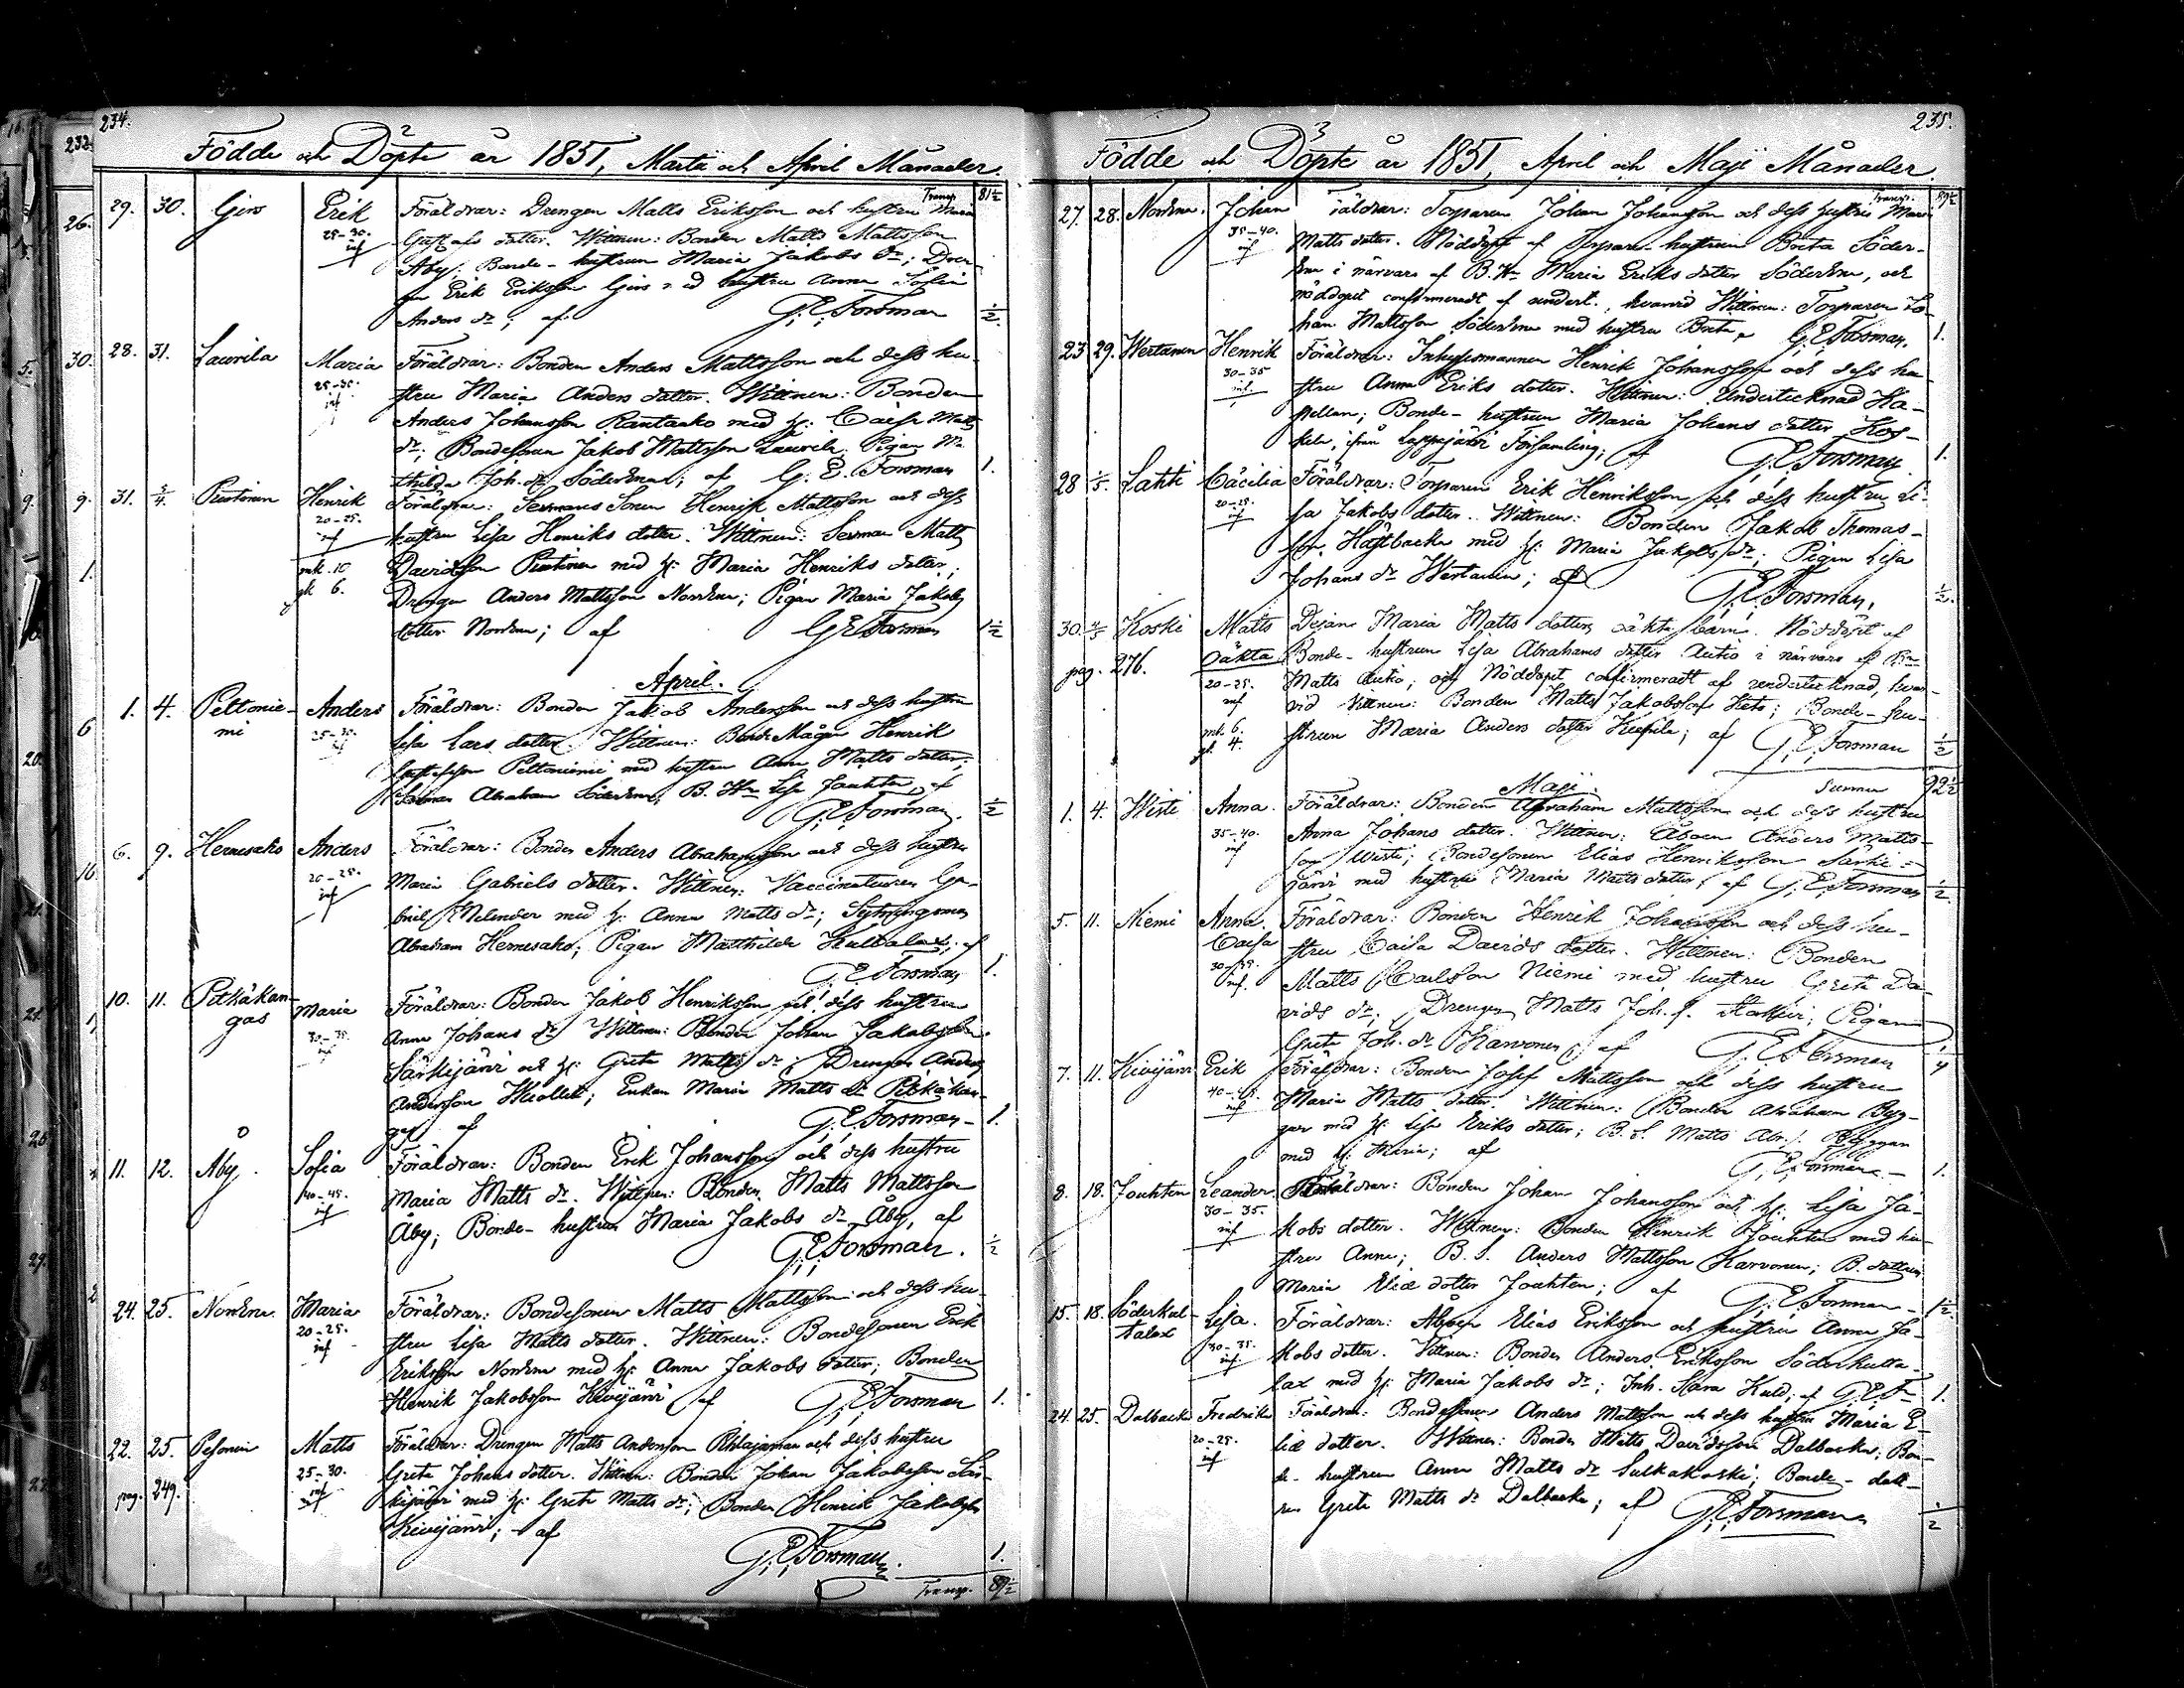 234.
Födde och Döpte år 1851, Martii och April Månader.
Transp. 81½
29. 30. Girs Erik Föräldrar: Drengen Matts Eriksson och hustru Maria
25-30. Gustafs dotter. Wittnen: Bonden Matts Mattsson
Åby; Bonde-hustrun Maria Jakobs dr; Dren-
gen Erik Eriksson Girs med hustru Anna Sofia
Anders dr; af G. E. Forsman ½.
28. 31. Laurila Maria Föräldrar: Bonden Anders Mattsson och dess hu-
25-30. stru Maria Anders dotter. Wittnen: Bonden
Anders Johansson Rantaaho med h: Caisa Matts
dr; Bondesonen Jakob Mattsson Laurila, Pigan Ma-
thilda Joh. dr Söderena; af G. E. Forsman 1.
31. 5/4. Puntinen Henrik Föräldrar: Sexmans Sonen Henrik Mattsson och dess
20-25. hustru Lisa Henriks dotter. Wittnen: Sexman Matts
mk. 10 Davidsson Puntinen med h: Maria Henriks dotter;
gk 6. Drengen Anders Mattsson Norrena; Pigan Maria Jakobs
dotter Norrena; af G. E. Forsman 1½
April.
1. 4. Peltonie- Anders Föräldrar: Bonden Jakob Andersson och dess hustru
mi 25-30. Lisa Lars dotter. Wittnen: Bonde Mågen Henrik
Gustafsson Peltoniemi med hustru Anna Matts dotter;
Abraham Söderena, B. Hn Lisa Jouhten, af
G. E. Forsman. ½
6. 9. Hernesaho Anders Föräldrar: Bonden Anders Abrahamsson och dess hustru
20-25. Maria Gabriels dotter. Wittnen: Vaccinateuren Ga-
briel Melender med h: Anna Matts dr; Sytningsman
Abraham Hernesaho; Pigan Matthilda Kultalax; af
G. E. Forsman 1.
10. 11. Pitkäkan- Maria Föräldrar: Bonden Jakob Henriksson och dess hustru
gas 30-35. Anna Johans dr. Wittnen: Bonden Johan Jakobsson
Särkijärvi och h: Greta Matts dr; Drengen Anders
Andersson; Enkan Maria Matts dr Pitkäkan-
gas af G. E. Forsman- 1.
11. 12. Åby. Sofia Föräldrar: Bonden Erik Johansson och dess hustru
40-45. Maria Matts dr. Wittnen: Bonden Matts Mattsson
Åby; Bonde-hustrun Maria Jakobs dr Åby, af
G. E. Forsman. ½
24. 25. Norrena. Maria Föräldrar: Bondesonen Matts Mattsson och dess hu-
20-25. stru Lisa Matts dotter. Wittnen: Bondesonen Erik
Eriksson Norrena med h: Anna Jakobs dotter; Bonden
Henrik Jakobsson Kivijärvi af G. E. Forsman 1.
22. 25. Pesonen Matts Föräldrar: Drengen Matts Andersson Pihlajamaa och dess hustru
pag. 249. 25-30. Greta Johans dotter. Wittnen: Bonden Johan Jakobsson Sär-
kijärvi med h: Greta Matts dr; Bonden Henrik Jakobsson
Kivijärvi; af
G. E. Forsman. 1.
Transp. 89½
235.
Födde och Döpte år 1851, April och Maji Månader.
Transp. 89½
27. 28. Norrena. Johan Föräldrar: Torparen Johan Johansson och dess hustru Maria
35-40. Matts dotter. Nöddöpt af Torpare-hustrun Brita Söder-
ena i närvaro af B. Hn Maria Eriks dotter Söderena, och
nöddopet confirmeradt af undert., hvarvid Wittnen: Torparen Jo-
han Mattsson Söderena med hustru Brita, G. E. Forsman. 1.
23 29. Wertanen Henrik Föräldrar: Inhysesmannen Henrik Johansson och dess hu-
30-35 stru Anna Eriks dotter. Wittnen: Undertecknad Ka-
pellan; Bonde-hustrun Maria Johans dotter Kos-
kela, ifrån Lappajärvi Församling; af G. E. Forsman. 1.
28 1/5. Lahti Cäcilia Föräldrar: Torparen Erik Henriksson och dess hustru Li-
20-25. sa Jakobs dotter. Wittnen: Bonden Jakob Thomas-
son Högbacka med h: Maria Jakobs dr; Pigan Lisa
Johans dr Wertanen; af G. E. Forsman. ½.
30. 4/5 Koski Matts Pigan Maria Matts dotters oäkta barn. Nöddöpt af
pag. 276. Oäkta Bonde-hustrun Lisa Abrahams dotter Autio i närvaro af
20-25. Matts Autio; och Nöddopet confirmeradt af undertecknad, hvar-
mk. 6. vid Wittnen: Bonden Matts Jakobsson Keto; Bonde-hu-
gk. 4. strun Maria Anders dotter; af G. E. Forsman ½
Summa 92½
Maji.
1. 4. Wisti Anna. Föräldrar: Bonden Abraham Mattsson och dess hustru
35-40. Anna Johans dotter. Wittnen: Åboen Anders Matts-
son Wisti; Bondesonen Elias Henriksson Särki-
järvi med hustru Maria Matts dotter, af G. E. Forsman ½
5. 11. Niemi Anna Föräldrar: Bonden Henrik Johansson och dess hu-
Caisa stru Caisa Davids dotter. Wittnen: Bonden
30-35. Matts Carlsson Niemi med hustru Greta Da-
vids dr; Drengen Matts Joh. s.; Pigan
Greta Joh. dr Harvonen; af G. E. Forsman ¼
7. 11. Kivijärvi Erik Föräldrar: Bonden Josef Mattsson och dess hustru
40-45. Maria Matts dotter. Wittnen: Bonden Abraham Byg-
gar med h: Lisa Eriks dotter; B. S. Matts Abr. s.
med h: Maria; af G. E. Forsman- 1.
8. 18. Jouhten Leander. Föräldrar: Bonden Johan Johansson och h: Lisa Ja-
30-35. kobs dotter. Wittnen: Bonden Henrik Jouhten med hu-
stru Anna; B. S. Anders Mattsson Harvonen; B. dottren
Maria Eliæ dotter Jouhten; af G. E. Forsman- 1½.
15. 18. Söderkul- Lisa. Föräldrar: Åboen Elias Eriksson och hustru Anna Ja-
talax 30-35. kobs dotter. Wittnen: Bonden Anders Eriksson Söderkulta-
lax med h: Maria Jakobs dr; Inh. Sara Kuld; af G. E. Fn 1.
24. 25. Dalbacka Fredrika Föräldrar: Bondesonen Anders Mattsson och dess hustru Maria E-
20-25. liæ dotter. Wittnen: Bonden Matts Davidsson Dalbacka; Bon-
de-hustrun Anna Matts dr Sulkakoski; Bonde-dott-
ren Greta Matts dr Dalbacka; af G. E. Forsman ½